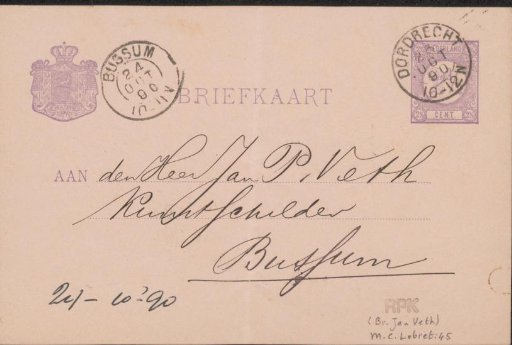 BUSSUM
24
OCT
90
DORDRECHT
24
OCT
90
10-12N
NEDERLAND
CENT
BRIEFKAART
AAN den Heer Jan P. Veth
Kunstschilder
Bussum
24-10-'90
RPK
(Br. Jan Veth)